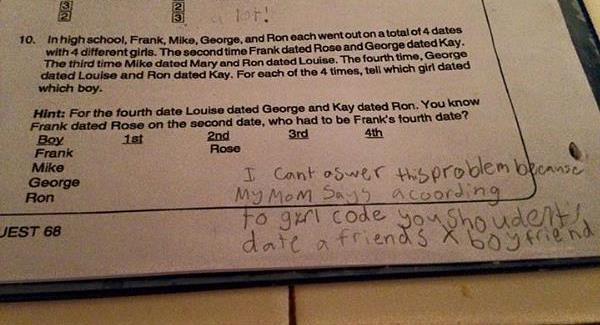 3 2
2 3
a lot!
10. In high school, Frank, Mike, George, and Ron each went out on a total of 4 dates
with 4 different girls. The second time Frank dated Rose and George dated Kay.
The third time Mike dated Mary and Ron dated Louise. The fourth time, George
dated Louise and Ron dated Kay. For each of the 4 times, tell which girl dated
which boy.
Hint: For the fourth date Louise dated George and Kay dated Ron. You know
Frank dated Rose on the second date, who had to be Frank's fourth date?
Boy 1st 2nd 3rd 4th
Frank Rose
Mike
George
Ron
I cant aswer this problem because
My Mom Says acoording
to girl code you shoudent
date a friends x boyfriend
UEST 68